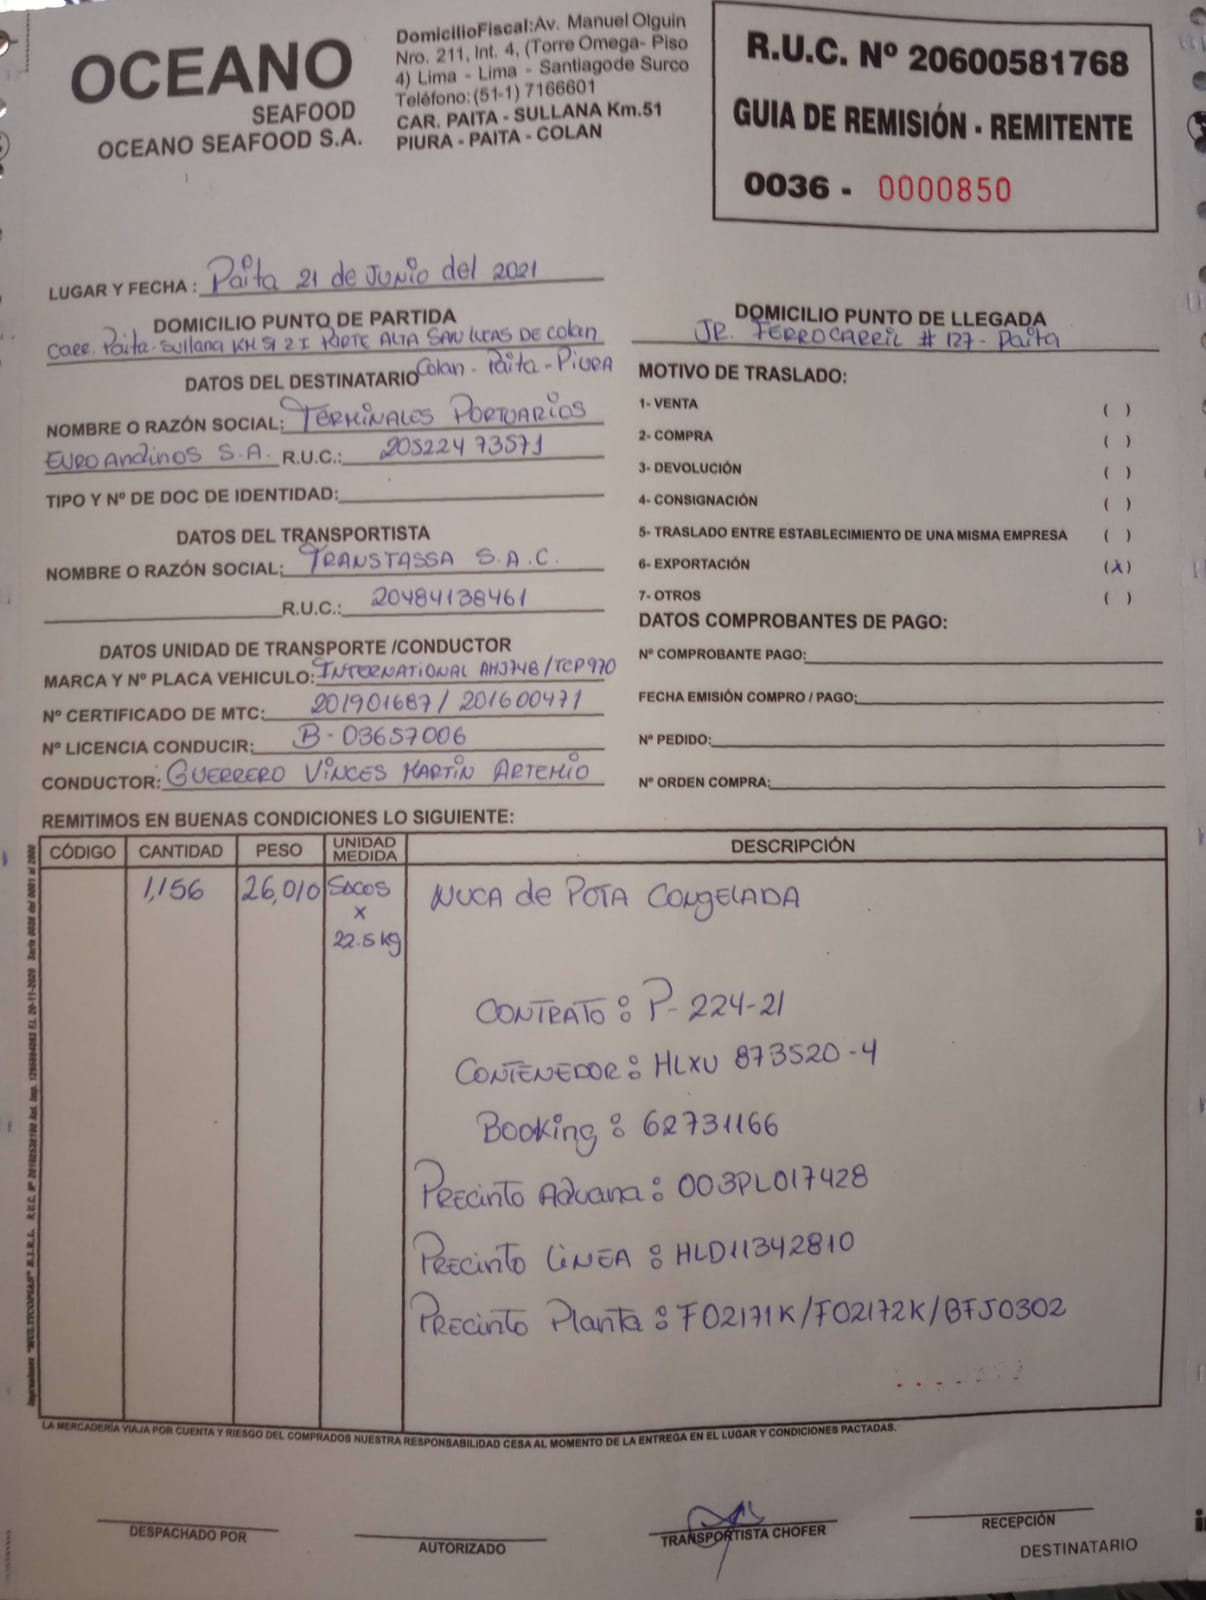 OCEANO
SEAFOOD
OCEANO SEAFOOD S.A.
DomicilioFiscal:Av. Manuel Olguin
Nro. 211, Int. 4, (Torre Omega- Piso
4) Lima - Lima - Santiagode Surco
Teléfono: (51-1) 7166601
CAR. PAITA - SULLANA Km.51
PIURA - PAITA - COLAN
R.U.C. Nº 20600581768
GUIA DE REMISIÓN - REMITENTE
0036 - 0000850
LUGAR Y FECHA : Paita 21 de Junio del 2021
DOMICILIO PUNTO DE PARTIDA
Carr. Paita-Sullana KM 51 Z I PARTE ALTA SAN LUCAS DE Colan
Colan - Paita - Piura
DOMICILIO PUNTO DE LLEGADA
JR. FERROCARRIL # 127- Paita
DATOS DEL DESTINATARIO
NOMBRE O RAZÓN SOCIAL: TERMINALES PORTUARIOS
EUROANdiNOS S.A. R.U.C.: 20522473571
TIPO Y Nº DE DOC DE IDENTIDAD:
DATOS DEL TRANSPORTISTA
NOMBRE O RAZÓN SOCIAL: TRANSTASSA S.A.C.
R.U.C.: 20484138461
DATOS UNIDAD DE TRANSPORTE /CONDUCTOR
MARCA Y Nº PLACA VEHICULO: INTERNATIONAL AHJ748/TCP970
Nº CERTIFICADO DE MTC: 201901687/ 201600471
Nº LICENCIA CONDUCIR: B-03657006
CONDUCTOR: GUERRERO VINCES MARTIN ARTEMIO
MOTIVO DE TRASLADO:
1- VENTA ( )
2- COMPRA ( )
3- DEVOLUCIÓN ( )
4- CONSIGNACIÓN ( )
5- TRASLADO ENTRE ESTABLECIMIENTO DE UNA MISMA EMPRESA ( )
6- EXPORTACIÓN (X)
7- OTROS ( )
DATOS COMPROBANTES DE PAGO:
Nº COMPROBANTE PAGO:
FECHA EMISIÓN COMPRO / PAGO:
Nº PEDIDO:
Nº ORDEN COMPRA:
REMITIMOS EN BUENAS CONDICIONES LO SIGUIENTE:
CÓDIGO CANTIDAD PESO UNIDAD MEDIDA DESCRIPCIÓN
1,156 26,010 SACOS x 22.5 kg NUCA de POTA CONGELADA
CONTRATO : P-224-21
CONTENEDOR : HLXU 873520-4
Booking : 62731166
PRECINTO ADUANA : 003PL017428
PRECINTO LINEA : HLD11342810
PRECINTO Planta : F02171K/F02172K/BFJ0302
LA MERCADERÍA VIAJA POR CUENTA Y RIESGO DEL COMPRADOS NUESTRA RESPONSABILIDAD CESA AL MOMENTO DE LA ENTREGA EN EL LUGAR Y CONDICIONES PACTADAS.
DESPACHADO POR
AUTORIZADO
TRANSPORTISTA CHOFER
RECEPCIÓN
DESTINATARIO